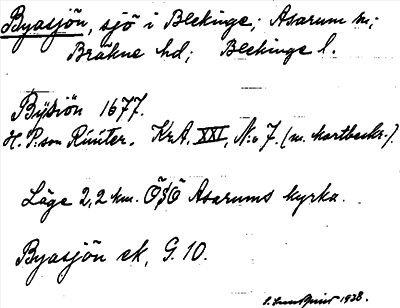 Byasjön, sjö i Blekinge; Asarum sn;
Bräkne hd; Blekinge l.
Bysiön 1677.
H. P:son Ruuter. KrA, XXI, N:o 7. (m. kartbeskr.).
Läge 2,2 km. ÖSÖ Asarums kyrka.
Byasjön ek, G. 10.
1938.